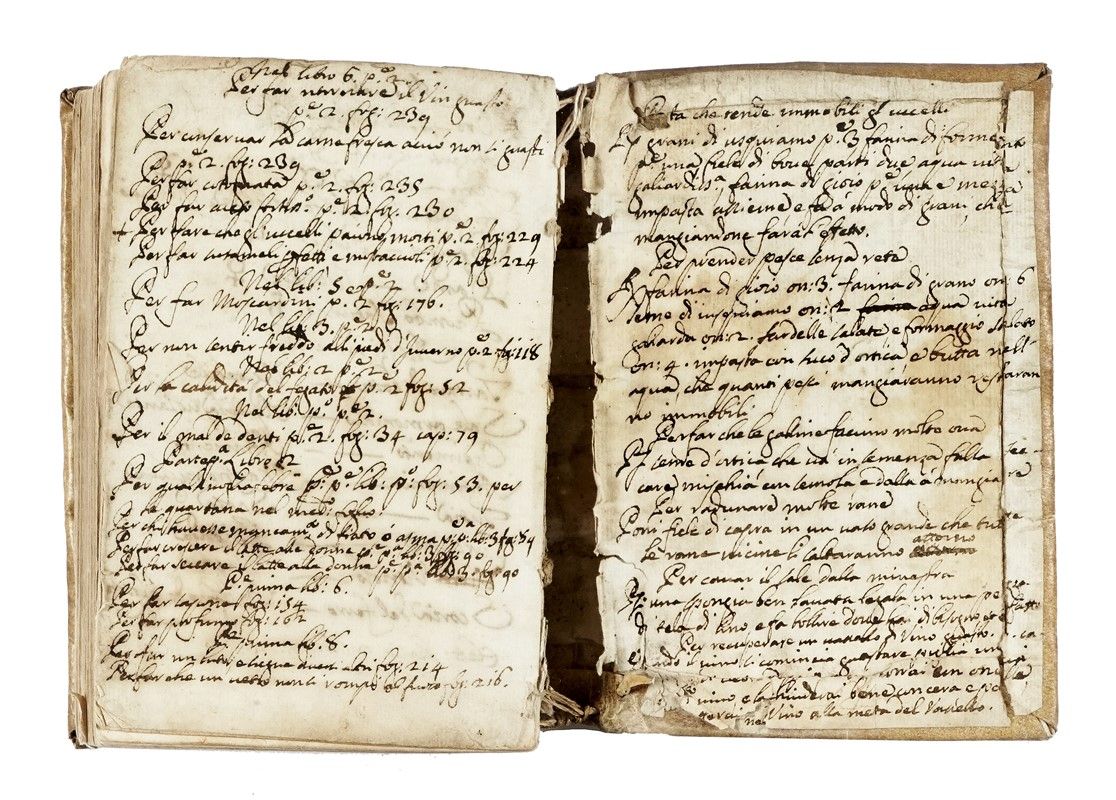 Nel libro 6. pᵉ 2
Per far ritornare il Vin guasto
pᵉ 2. fog: 239
Per conservar la carne fresca acciò non si guasti
pᵉ 2. fog: 239
Per far pᵉ 2. fog: 235
Per far aceto fortisº pᵉ 2 fog: 230
+ Per fare che gl'uccelli paiino morti pᵉ 2. fog: 229
Per far e mostaccioli pᵉ 2. fog: 224
Nel lib: 5 pᵉ 2
Per far Moscardini pᵉ 2 fog: 176.
Nel lib: 3. pᵉ 2
Per non sentir freddo alli piedi d'Inverno pᵉ 2. fog: 118
Nel lib: 2 pᵉ 2
Per la calidità del fegato pᵉ 2 fog: 52
Nel lib: pº: pᵉ 2.
Per il mal de Denti pᵉ 2. fog: 34 cap: 79
Parte pᵃ Libro 2
Per qual si voglia febre pᵉ pᵉ lib: pº: fog: 53. per
la quartana nel medº foglio
Per chi havesse mancanzᵃ di fiato ò asma pᵉ pᵃ lib: 3 fog: 84
Per far crescere il latte alle donne pᵉ pᵃ lib: 3 fog: 90
Per far seccare il latte alla donna pᵉ pᵃ lib 3 fog: 90
Pᵉ prima lib: 6.
Per far sapone fog: 154
Per far profumo fog: 162
Pᵉ prima lib: 8.
Per far un lume altri fog: 214
Per far che un vetro non si rompa al fuoco fog: 216.
Pasta che rende immobili gl'uccelli
Rx grani di iusquiamo pᵉ 3 farina di formento
pᵉ una fiele di bove parti due aqua vita
galiardisᵃ, farina di gioio pᵉ una e mezza
impasta assieme e fa à modo di grani, che
mangiandone farà l'effetto.
Per prender pesce senza rete
Rx farina di gioio on: 3. farina di grano on: 6
seme di iusquiamo on: 2 aqua vita
galiarda on: 2. sardelle salate e formaggio
on: 4. impasta con suco d'ortica e butta nell'
aqua, che quanti pesci mangiaranno restaran
no immobili.
Per far che le galine faccino molte ova
Rx seme d'ortica che và in semenza falla
care, mischia con semola e dalla à mangiare
Per radunare molte rane
Poni fiele di capra in un vaso grande che tutte
le rane vicine li saltaranno attorno
Per cavar il sale dalla minestra
Rx una spongia ben lavata legata in una pezza
di tela di lino e fa bollire dove hai di bisogno
Per recuperare un vassello di Vino guasto.
quando il vino si comincia guastare piglia un
vino e la chiuderai bene con cera e
Vino alla metà del Vassello.